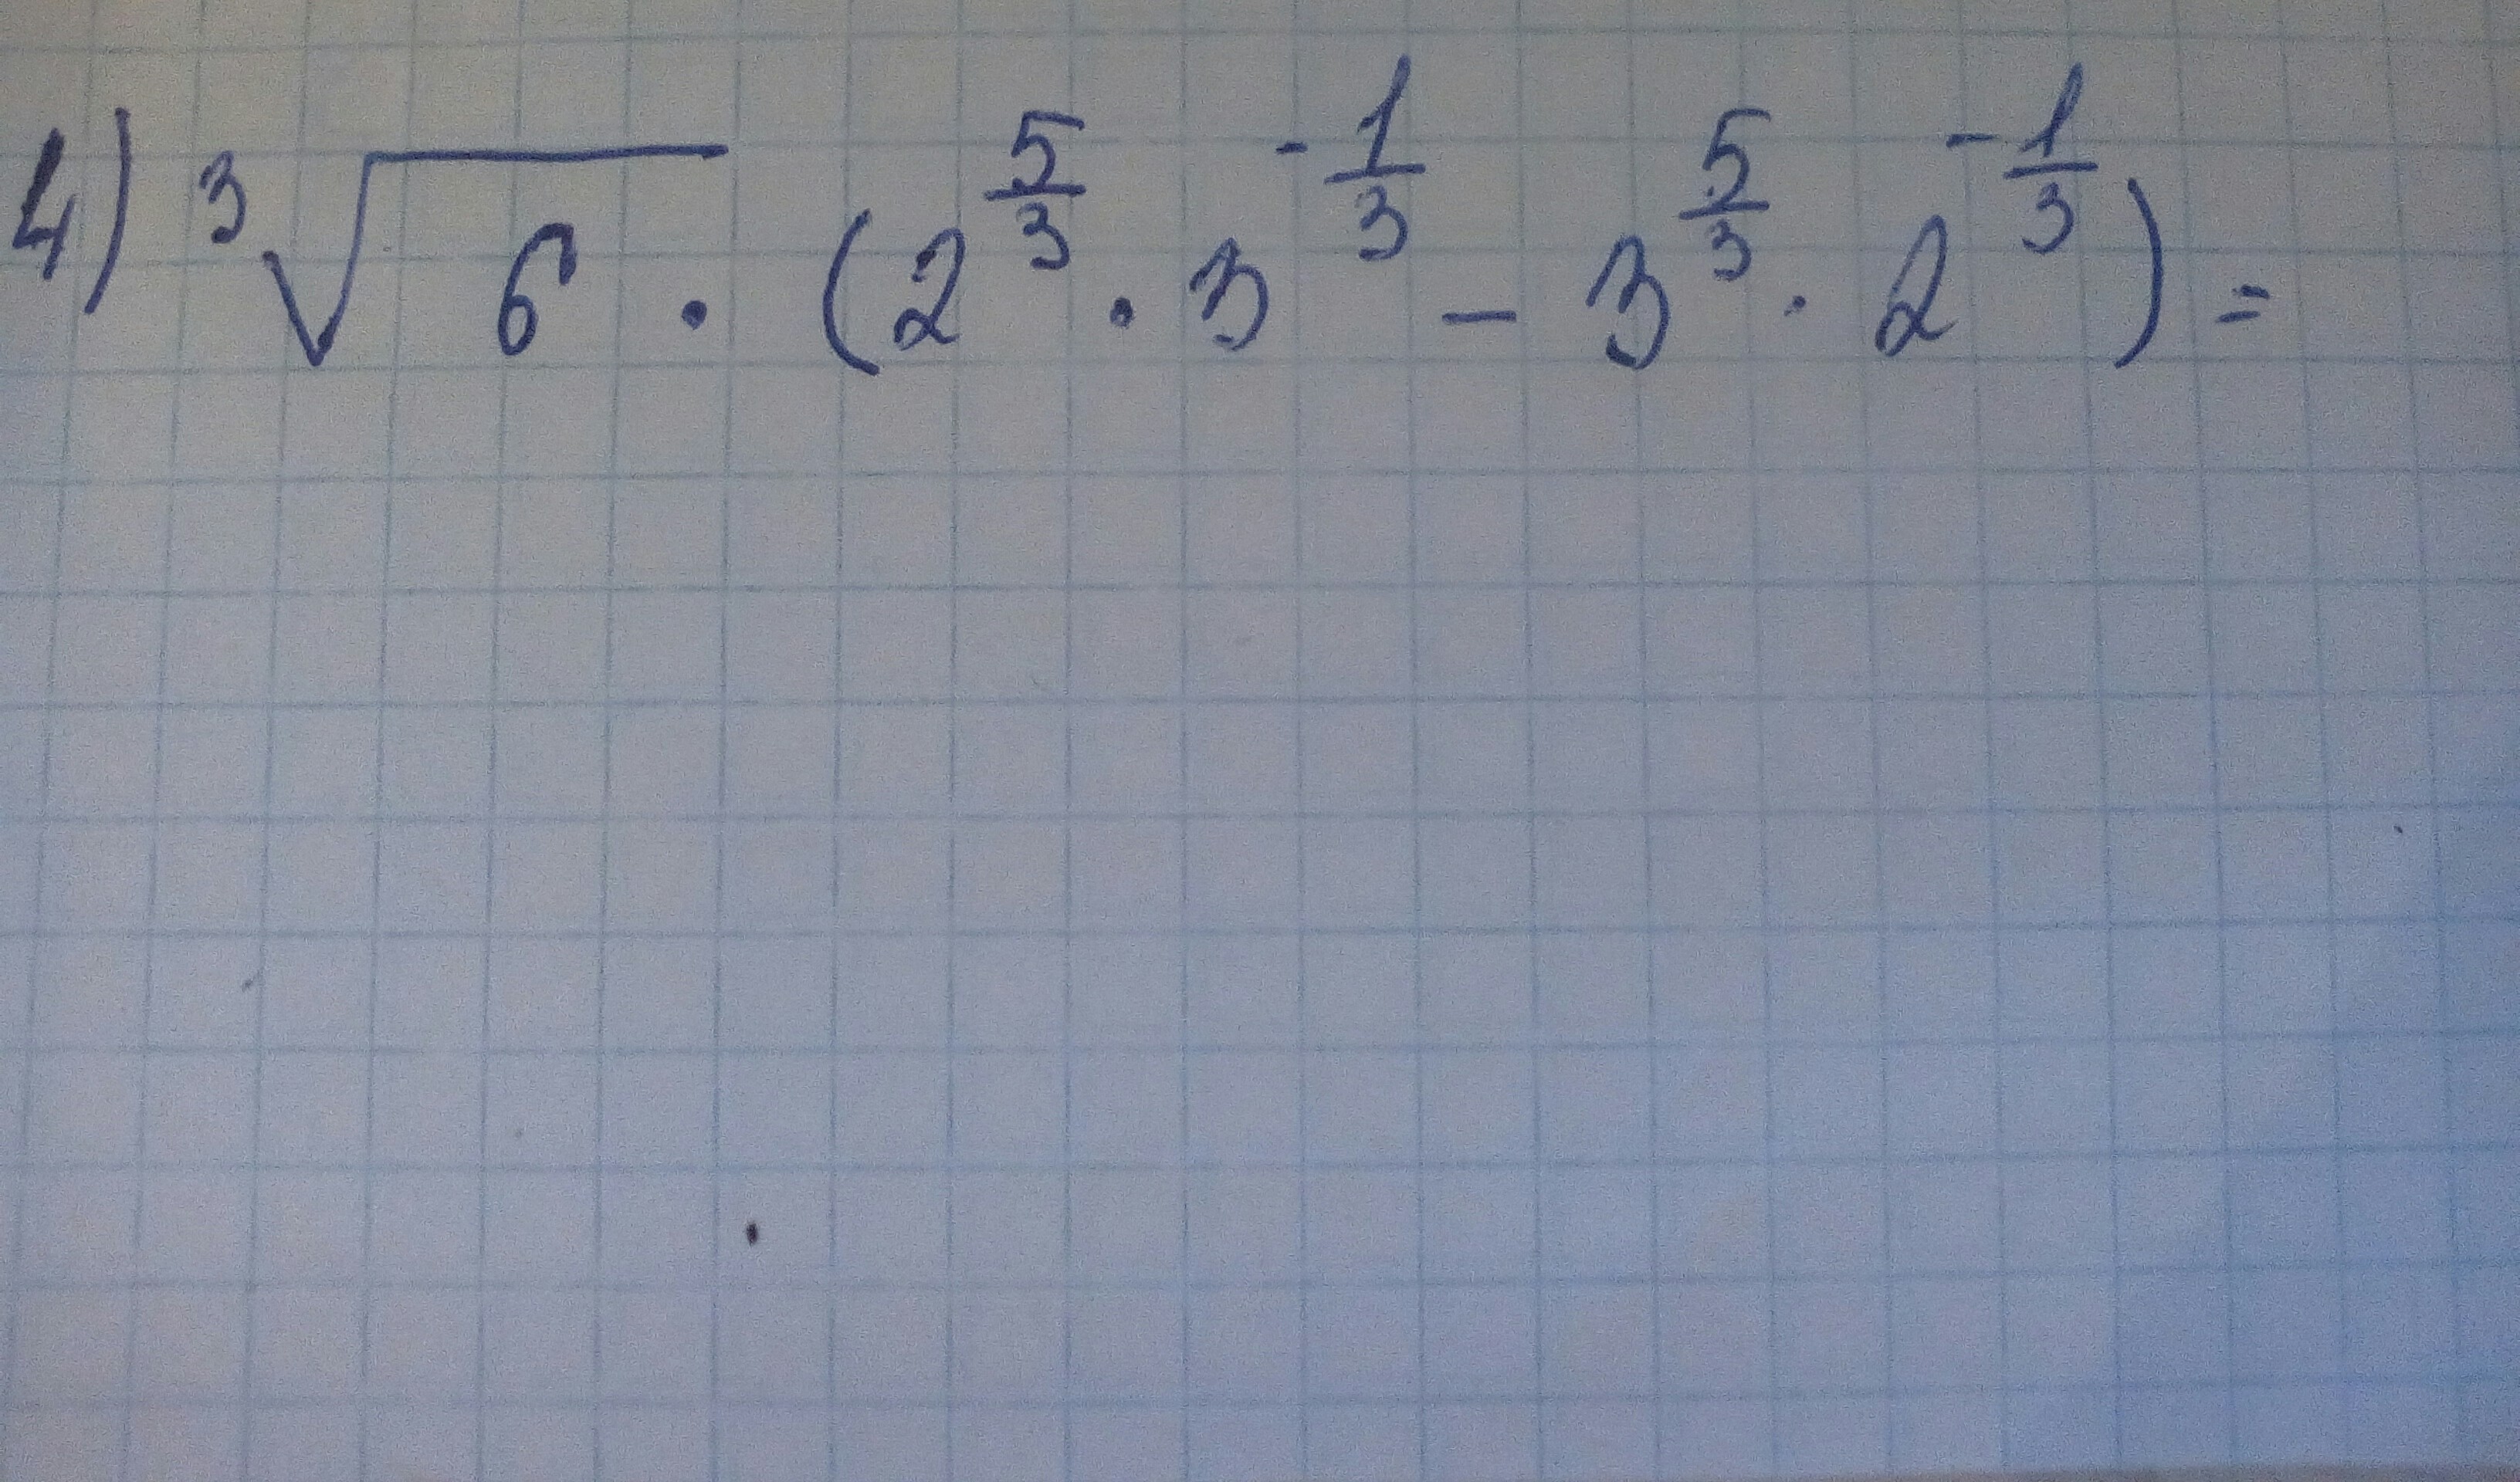 4) ³√6 · (2^(5/3) · 3^(-1/3) - 3^(5/3) · 2^(-1/3)) =